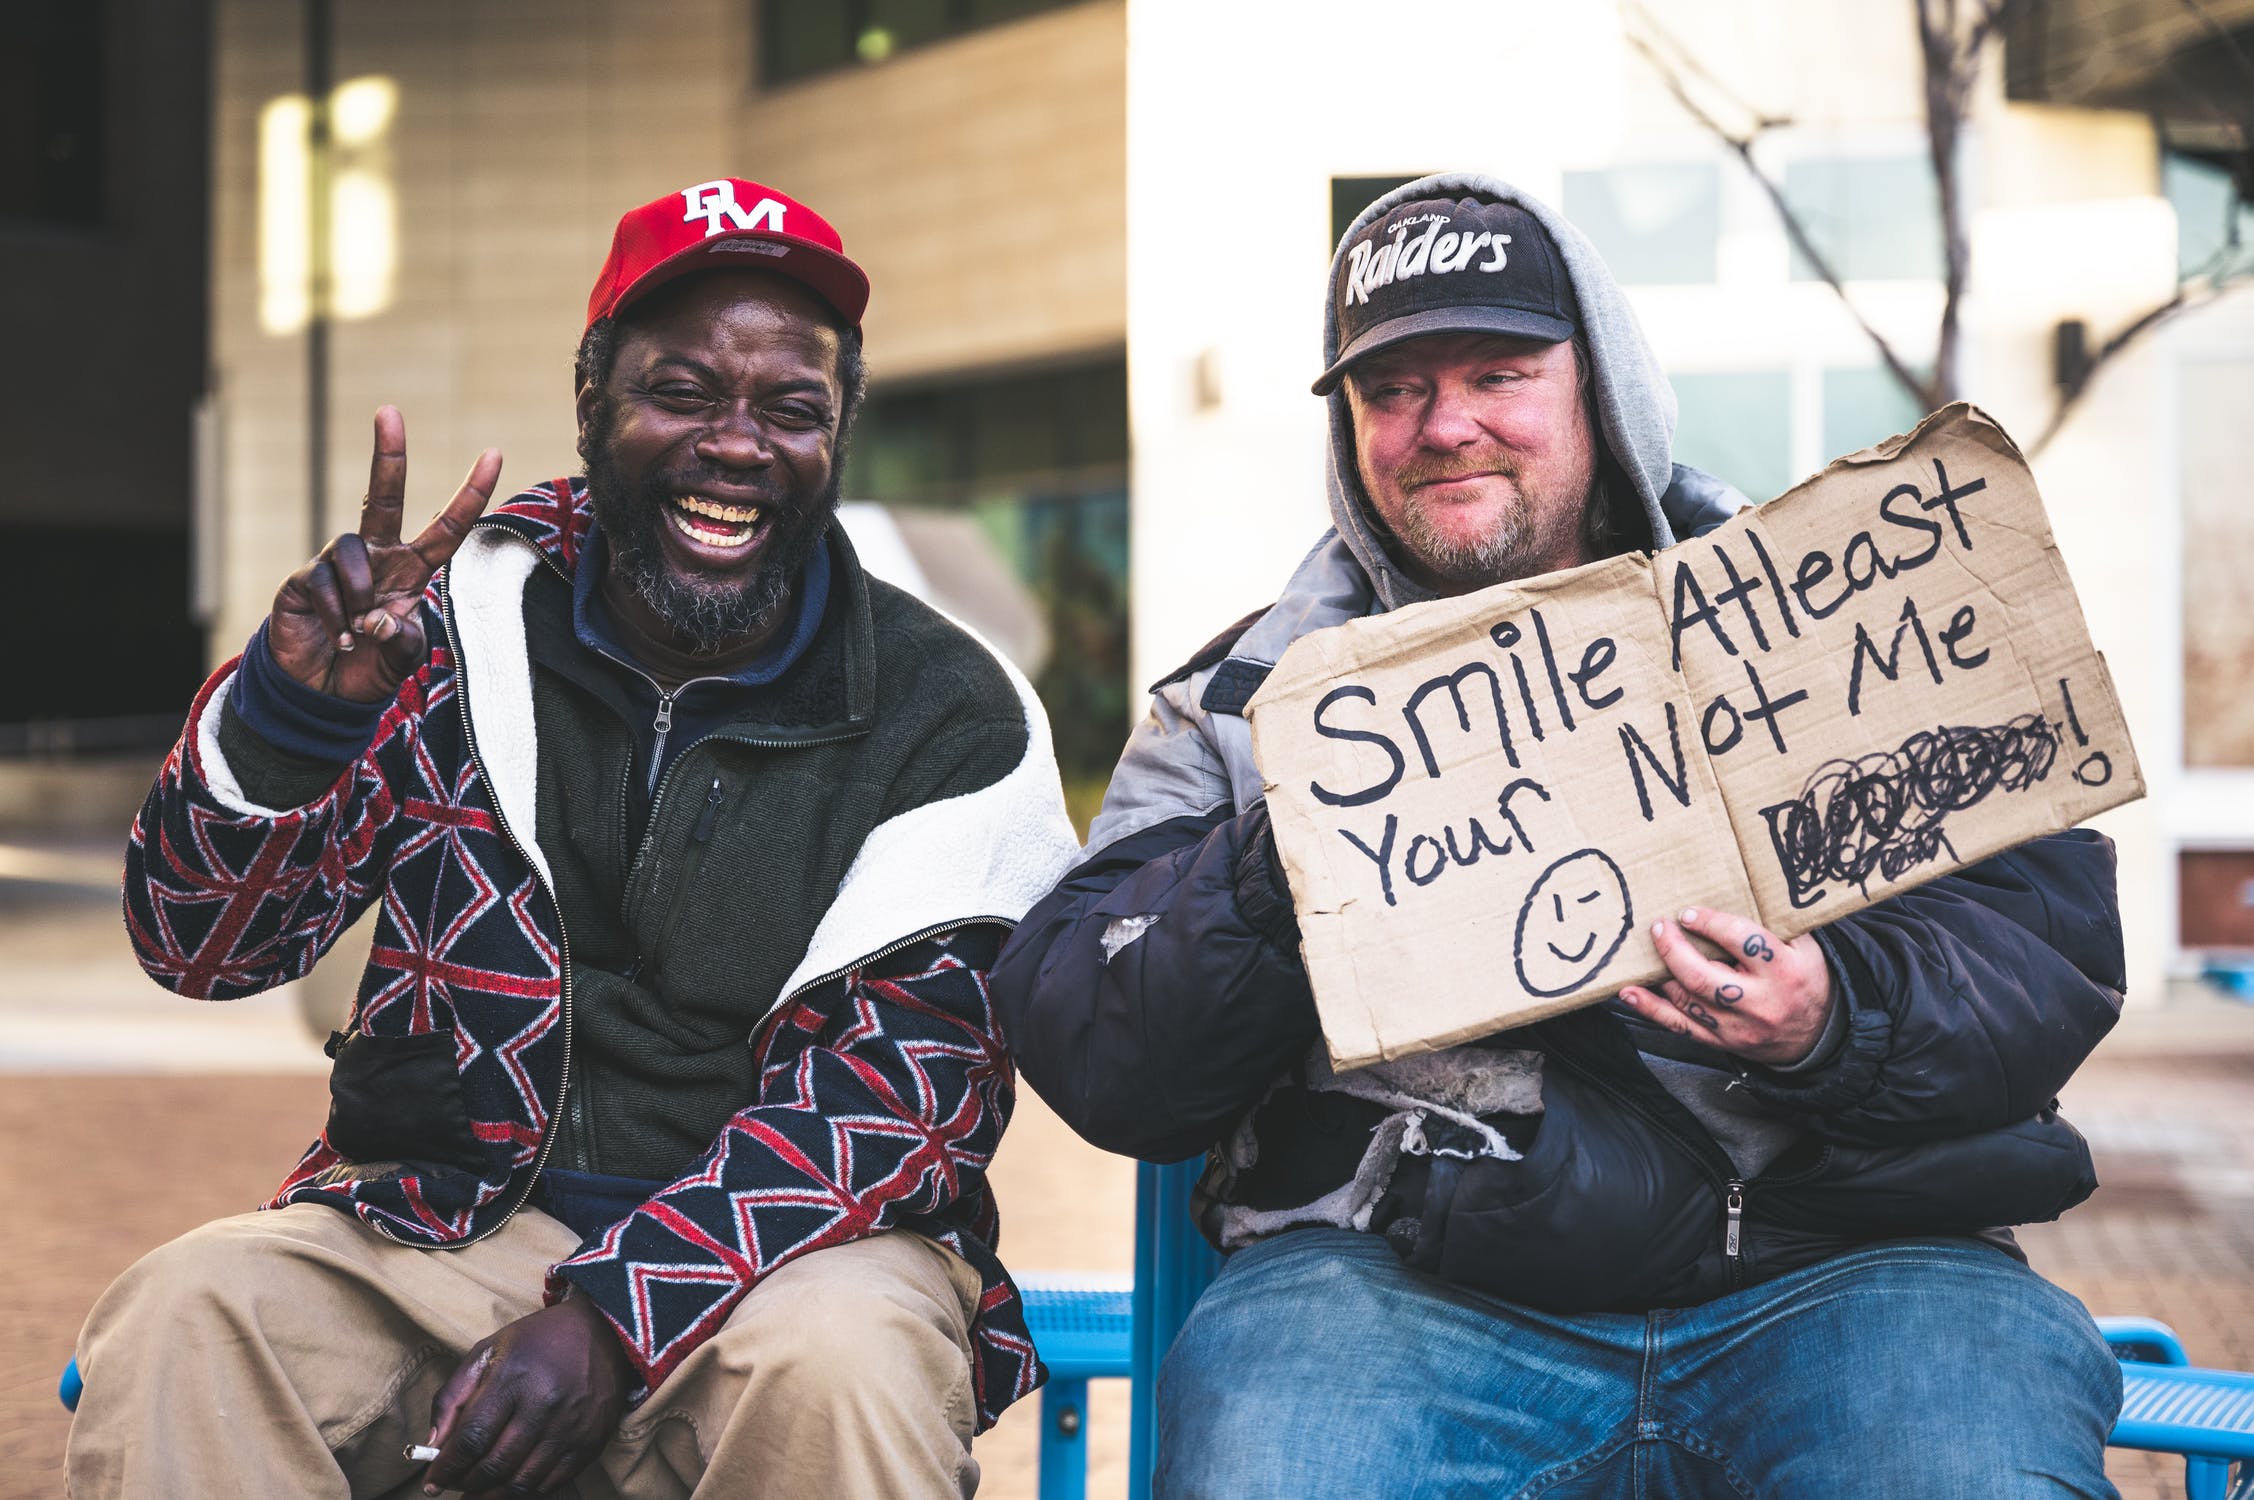 DM
OAKLAND
Raiders
Smile Atleast
Your Not Me
!